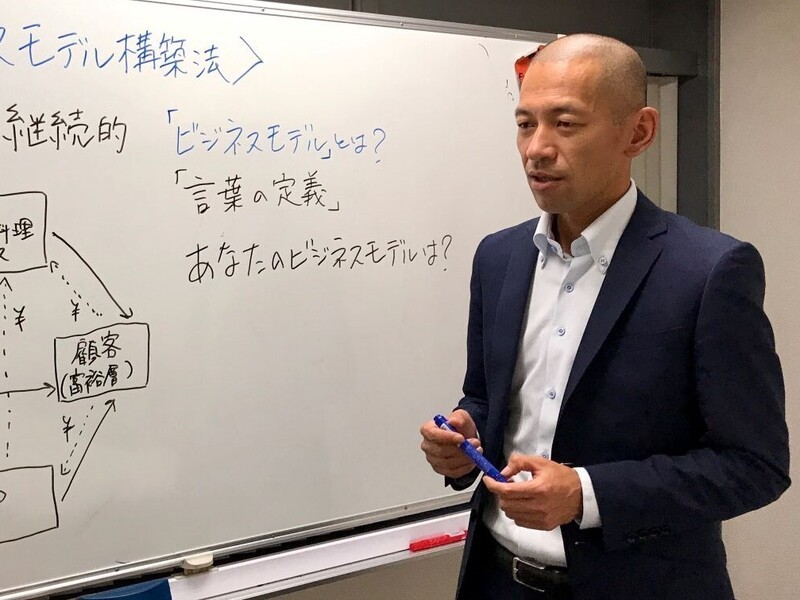 スモデル構築法〉
継続的
「ビジネスモデル」とは?
「言葉の定義」
あなたのビジネスモデルは?
料理
ス
¥
¥
顧客
(富裕層)
¥